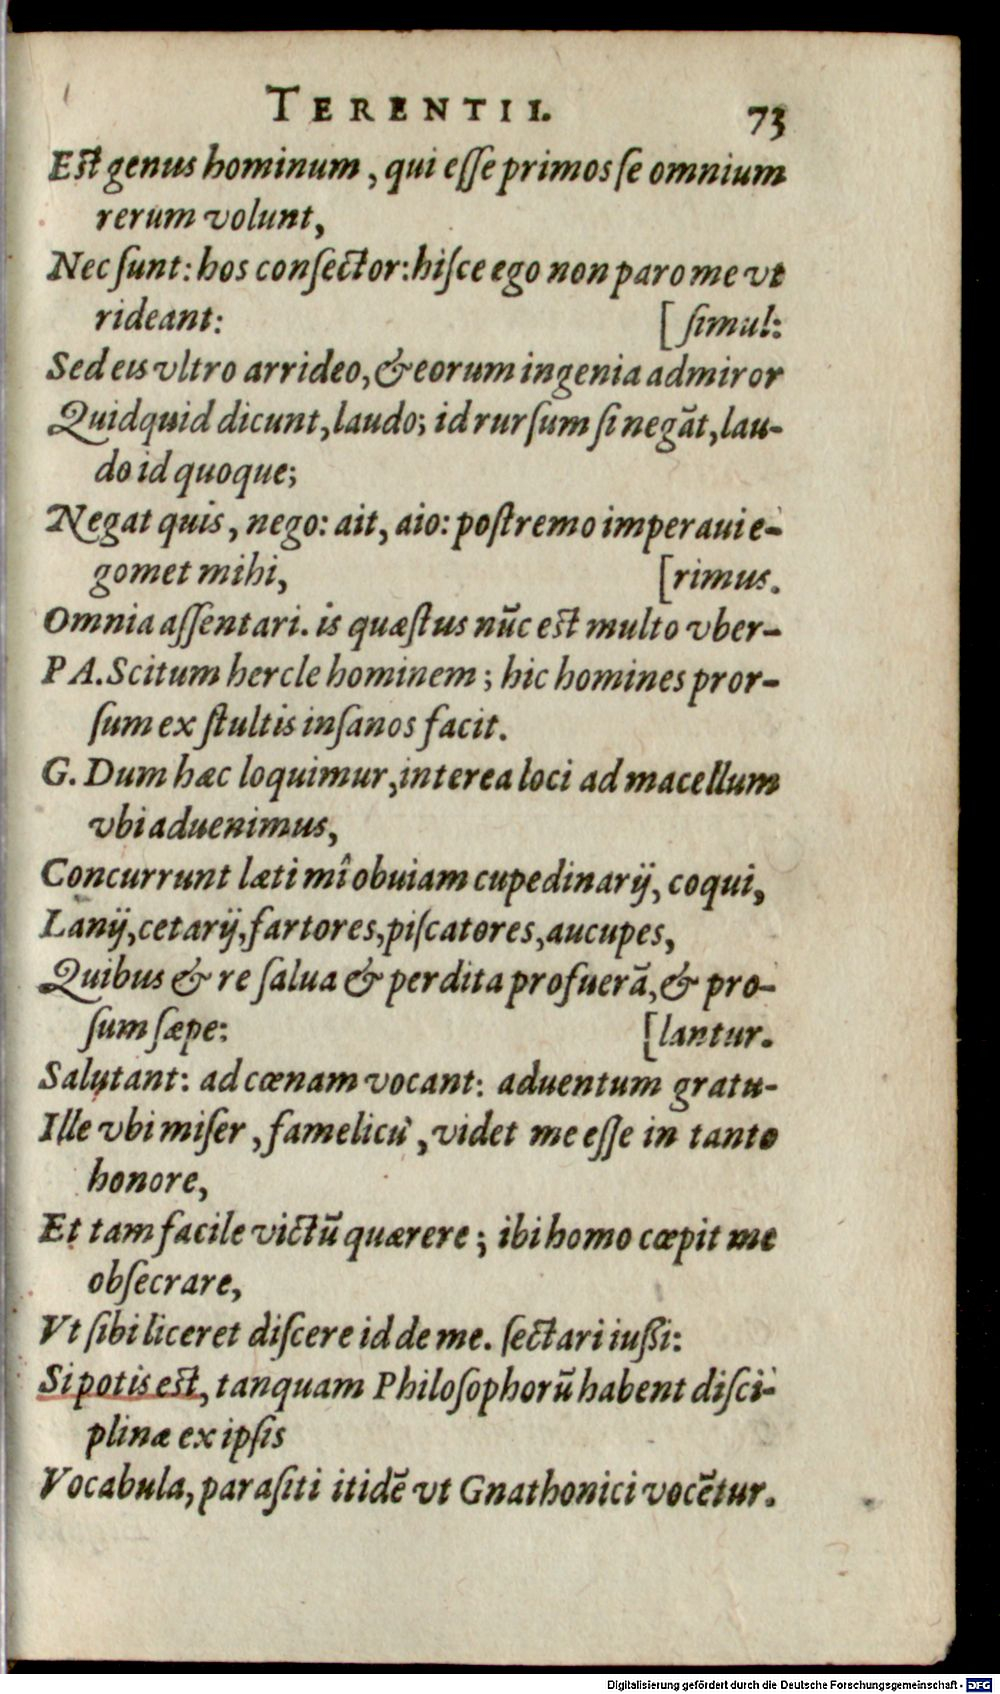 TERENTII. 73
Est genus hominum, qui eſſe primos ſe omnium
rerum volunt,
Nec ſunt: hos conſector: hiſce ego non paro me vt
rideant: [ſimul:
Sed eis vltro arrideo, & eorum ingenia admiror
Quidquid dicunt, laudo; id rurſum ſi negāt, lau-
do id quoque;
Negat quis, nego: ait, aio: poſtremo imperaui e-
gomet mihi, [rimus.
Omnia aſſentari. is quæſtus nūc est multo vber-
PA. Scitum hercle hominem; hic homines pror-
ſum ex ſtultis inſanos facit.
G. Dum hæc loquimur, interea loci ad macellum
vbi aduenimus,
Concurrunt læti mî obuiam cupedinarij, coqui,
Lanij, cetarij, fartores, piſcatores, aucupes,
Quibus & re ſalua & perdita profuerā, & pro-
ſum ſæpe: [lantur.
Salutant: ad cœnam vocant: aduentum gratu-
Ille vbi miſer, famelicu', videt me eſſe in tanto
honore,
Et tam facile victū quærere; ibi homo cœpit me
obſecrare,
Vt ſibi liceret diſcere id de me. ſectari iuſſi:
Si potis est, tanquam Philoſophorū habent diſci-
plinæ ex ipſis
Vocabula, paraſiti itidē vt Gnathonici vocētur.
Digitalisierung gefördert durch die Deutsche Forschungsgemeinschaft - DFG